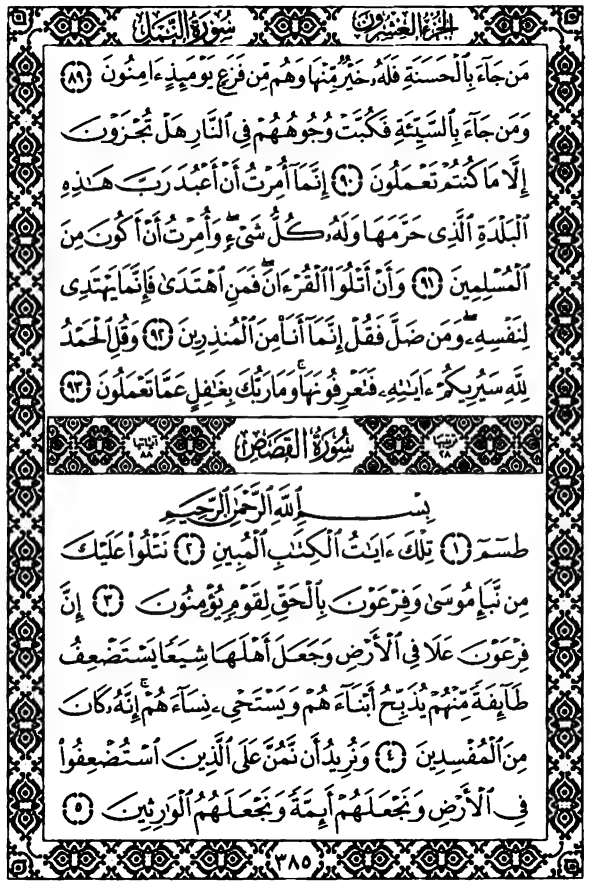 سُورَةُ النَّمْلِ
الجُزْءُ العِشْرُونَ
مَن جَآءَ بِٱلْحَسَنَةِ فَلَهُۥ خَيْرٌ مِّنْهَا وَهُم مِّن فَزَعٍ يَوْمَئِذٍ ءَامِنُونَ ﴿٨٩﴾
وَمَن جَآءَ بِٱلسَّيِّئَةِ فَكُبَّتْ وُجُوهُهُمْ فِى ٱلنَّارِ هَلْ تُجْزَوْنَ
إِلَّا مَا كُنتُمْ تَعْمَلُونَ ﴿٩٠﴾ إِنَّمَآ أُمِرْتُ أَنْ أَعْبُدَ رَبَّ هَٰذِهِ
ٱلْبَلْدَةِ ٱلَّذِى حَرَّمَهَا وَلَهُۥ كُلُّ شَىْءٍ ۖ وَأُمِرْتُ أَنْ أَكُونَ مِنَ
ٱلْمُسْلِمِينَ ﴿٩١﴾ وَأَنْ أَتْلُوَا۟ ٱلْقُرْءَانَ ۖ فَمَنِ ٱهْتَدَىٰ فَإِنَّمَا يَهْتَدِى
لِنَفْسِهِۦ ۖ وَمَن ضَلَّ فَقُلْ إِنَّمَآ أَنَا۠ مِنَ ٱلْمُنذِرِينَ ﴿٩٢﴾ وَقُلِ ٱلْحَمْدُ
لِلَّهِ سَيُرِيكُمْ ءَايَٰتِهِۦ فَتَعْرِفُونَهَا ۚ وَمَا رَبُّكَ بِغَٰفِلٍ عَمَّا تَعْمَلُونَ ﴿٩٣﴾
ترتيبها ٢٨
سُورَةُ القَصَصِ
آياتها ٨٨
بِسْمِ ٱللَّهِ ٱلرَّحْمَٰنِ ٱلرَّحِيمِ
طسٓمٓ ﴿١﴾ تِلْكَ ءَايَٰتُ ٱلْكِتَٰبِ ٱلْمُبِينِ ﴿٢﴾ نَتْلُوا۟ عَلَيْكَ
مِن نَّبَإِ مُوسَىٰ وَفِرْعَوْنَ بِٱلْحَقِّ لِقَوْمٍ يُؤْمِنُونَ ﴿٣﴾ إِنَّ
فِرْعَوْنَ عَلَا فِى ٱلْأَرْضِ وَجَعَلَ أَهْلَهَا شِيَعًا يَسْتَضْعِفُ
طَآئِفَةً مِّنْهُمْ يُذَبِّحُ أَبْنَآءَهُمْ وَيَسْتَحْىِۦ نِسَآءَهُمْ ۚ إِنَّهُۥ كَانَ
مِنَ ٱلْمُفْسِدِينَ ﴿٤﴾ وَنُرِيدُ أَن نَّمُنَّ عَلَى ٱلَّذِينَ ٱسْتُضْعِفُوا۟
فِى ٱلْأَرْضِ وَنَجْعَلَهُمْ أَئِمَّةً وَنَجْعَلَهُمُ ٱلْوَٰرِثِينَ ﴿٥﴾
٣٨٥